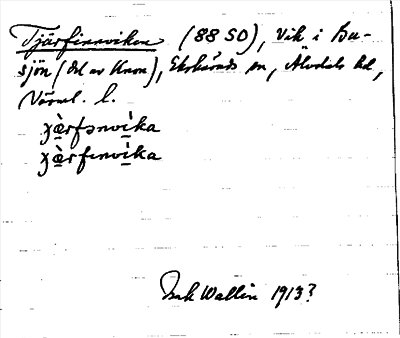 Tjärfinnviken (88 SO), Vik i Bu-
sjön (del av Knon), Ekshärads sn, Älvdals hd,
Värml. l.
χæ̀rfənvìka
χæ̀rfɪnvìka
Erik Wallin 1913?